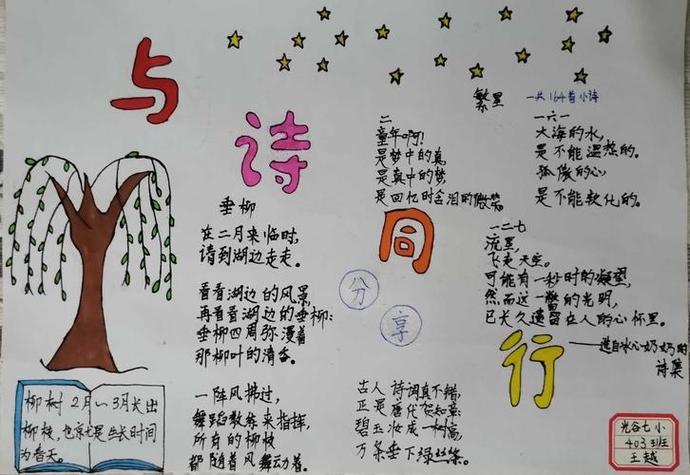 与
诗
同
行
分
享
垂柳
在二月来临时,
请到湖边走走。
看看湖边的风景,
再看看湖边的垂柳:
垂柳四周弥漫着
那柳叶的清香。
一阵风拂过,
舞蹈教练来指挥,
所有的柳枝
都随着风舞动着.
古人诗词真不错,
正是唐代贺知章:
碧玉妆成一树高,
万条垂下绿丝绦。
柳树2月~3月长出
柳枝,也就是生长时间
为春天。
繁星 一共164首小诗
二
童年啊!
是梦中的真,
是真中的梦,
是回忆时含泪的微笑。
一六一
大海的水,
是不能温热的。
孤傲的心
是不能软化的。
一二七
流星,
飞走天空。
可能有一秒时的凝望,
然而这一瞥的光明,
已长久遗留在人的心怀里。
——选自冰心奶奶的
诗集
光谷七小
403班
王越